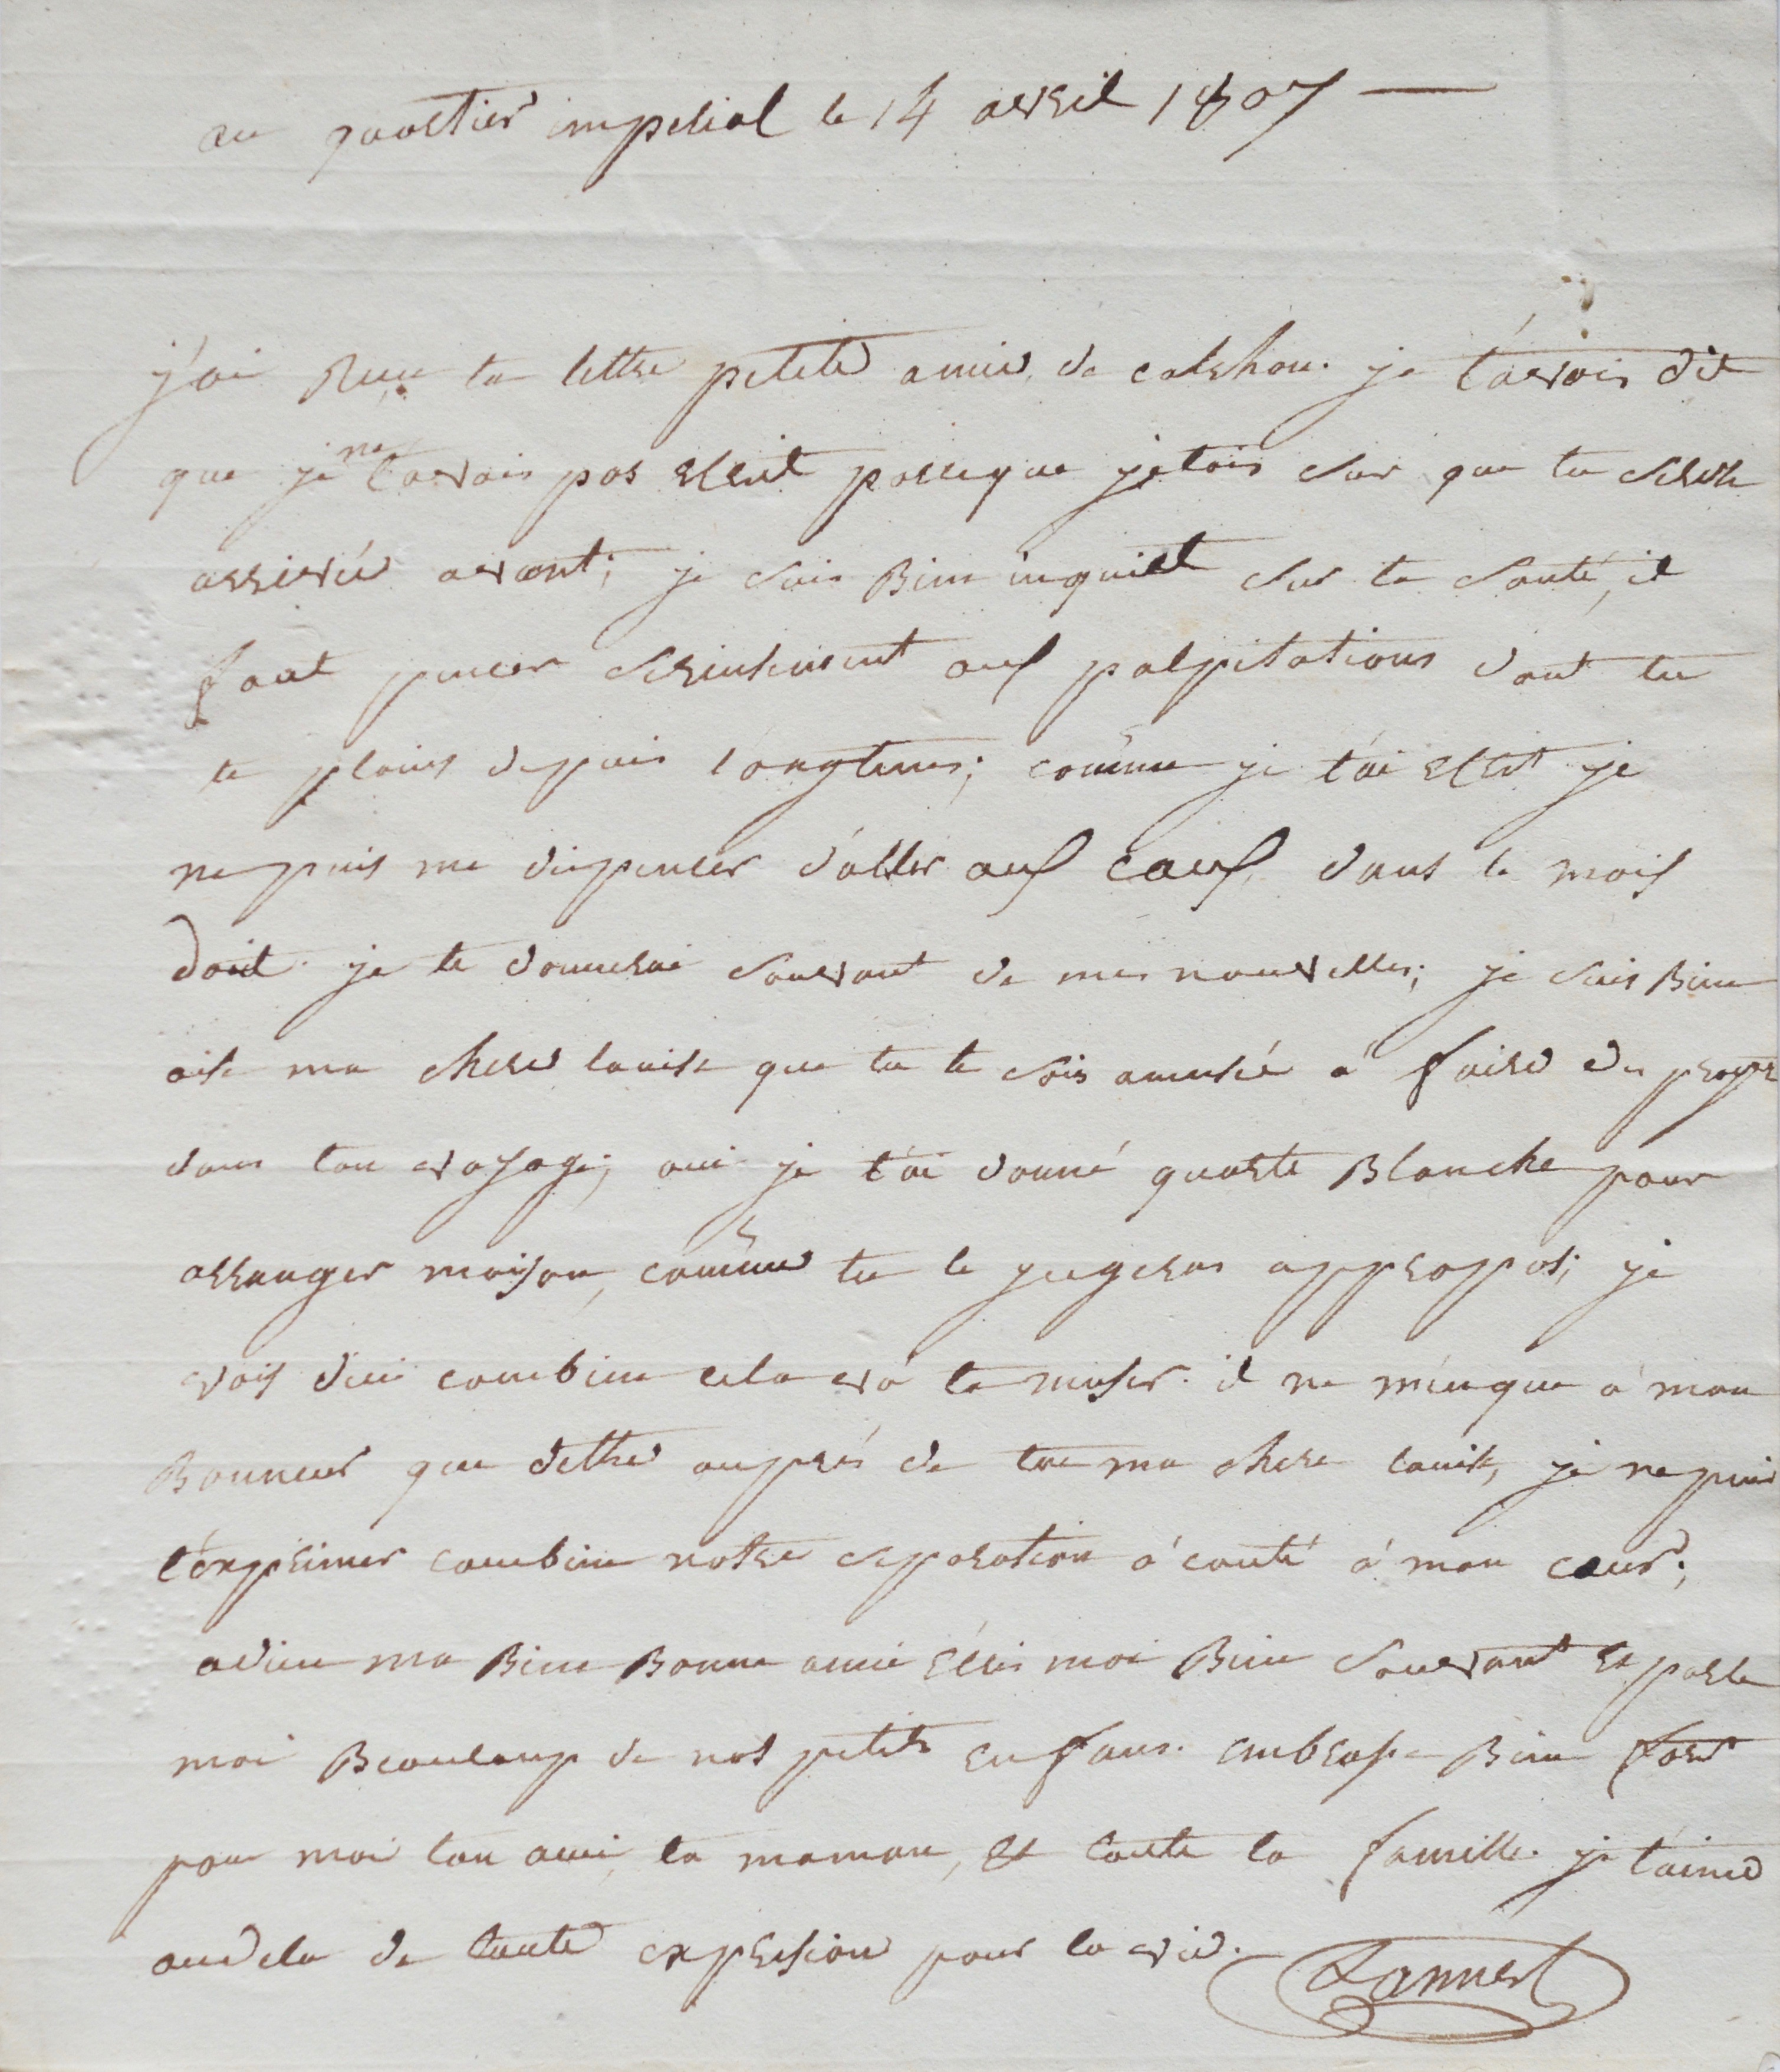 au quartier imperial le 14 avril 1807
j'ai reçu ta lettre petite amie de
je t'avois dit
que je ne t'avois pas ecrit parceque jetois sur que tu serois
arrivée avant; je suis Bien inquiet sur ta santé, il
faut penser serieusement aux palpitations dont tu
te plains depuis longtems; comme je t'ai ecrit je
ne puis me dispenser d'aller aux eaux, dans le mois
doût. je te donnerai souvant de mes nouvelles; je suis Bien
aise ma chere louise que tu te sois amusée a faire du
dans ton voyage; oui je t'ai donné quarte Blanche pour
arranger maison, comme tu le jugeras appropos; je
vois dici combien cela va ta muser. il ne menque a mon
Bonneur que dettre auprés de toi ma chere louise, je ne puis
t'exprimer combien notre separation a couté a mon cœur;
adieu ma Bien Bonne amie ecris moi Bien souvant et parle
moi Beaucoup de nos petits enfans. embrasse Bien fort
pour moi ton ami, ta maman, et toute la famille. je t'aime
audela de toute expression pour la vie.
Lannes